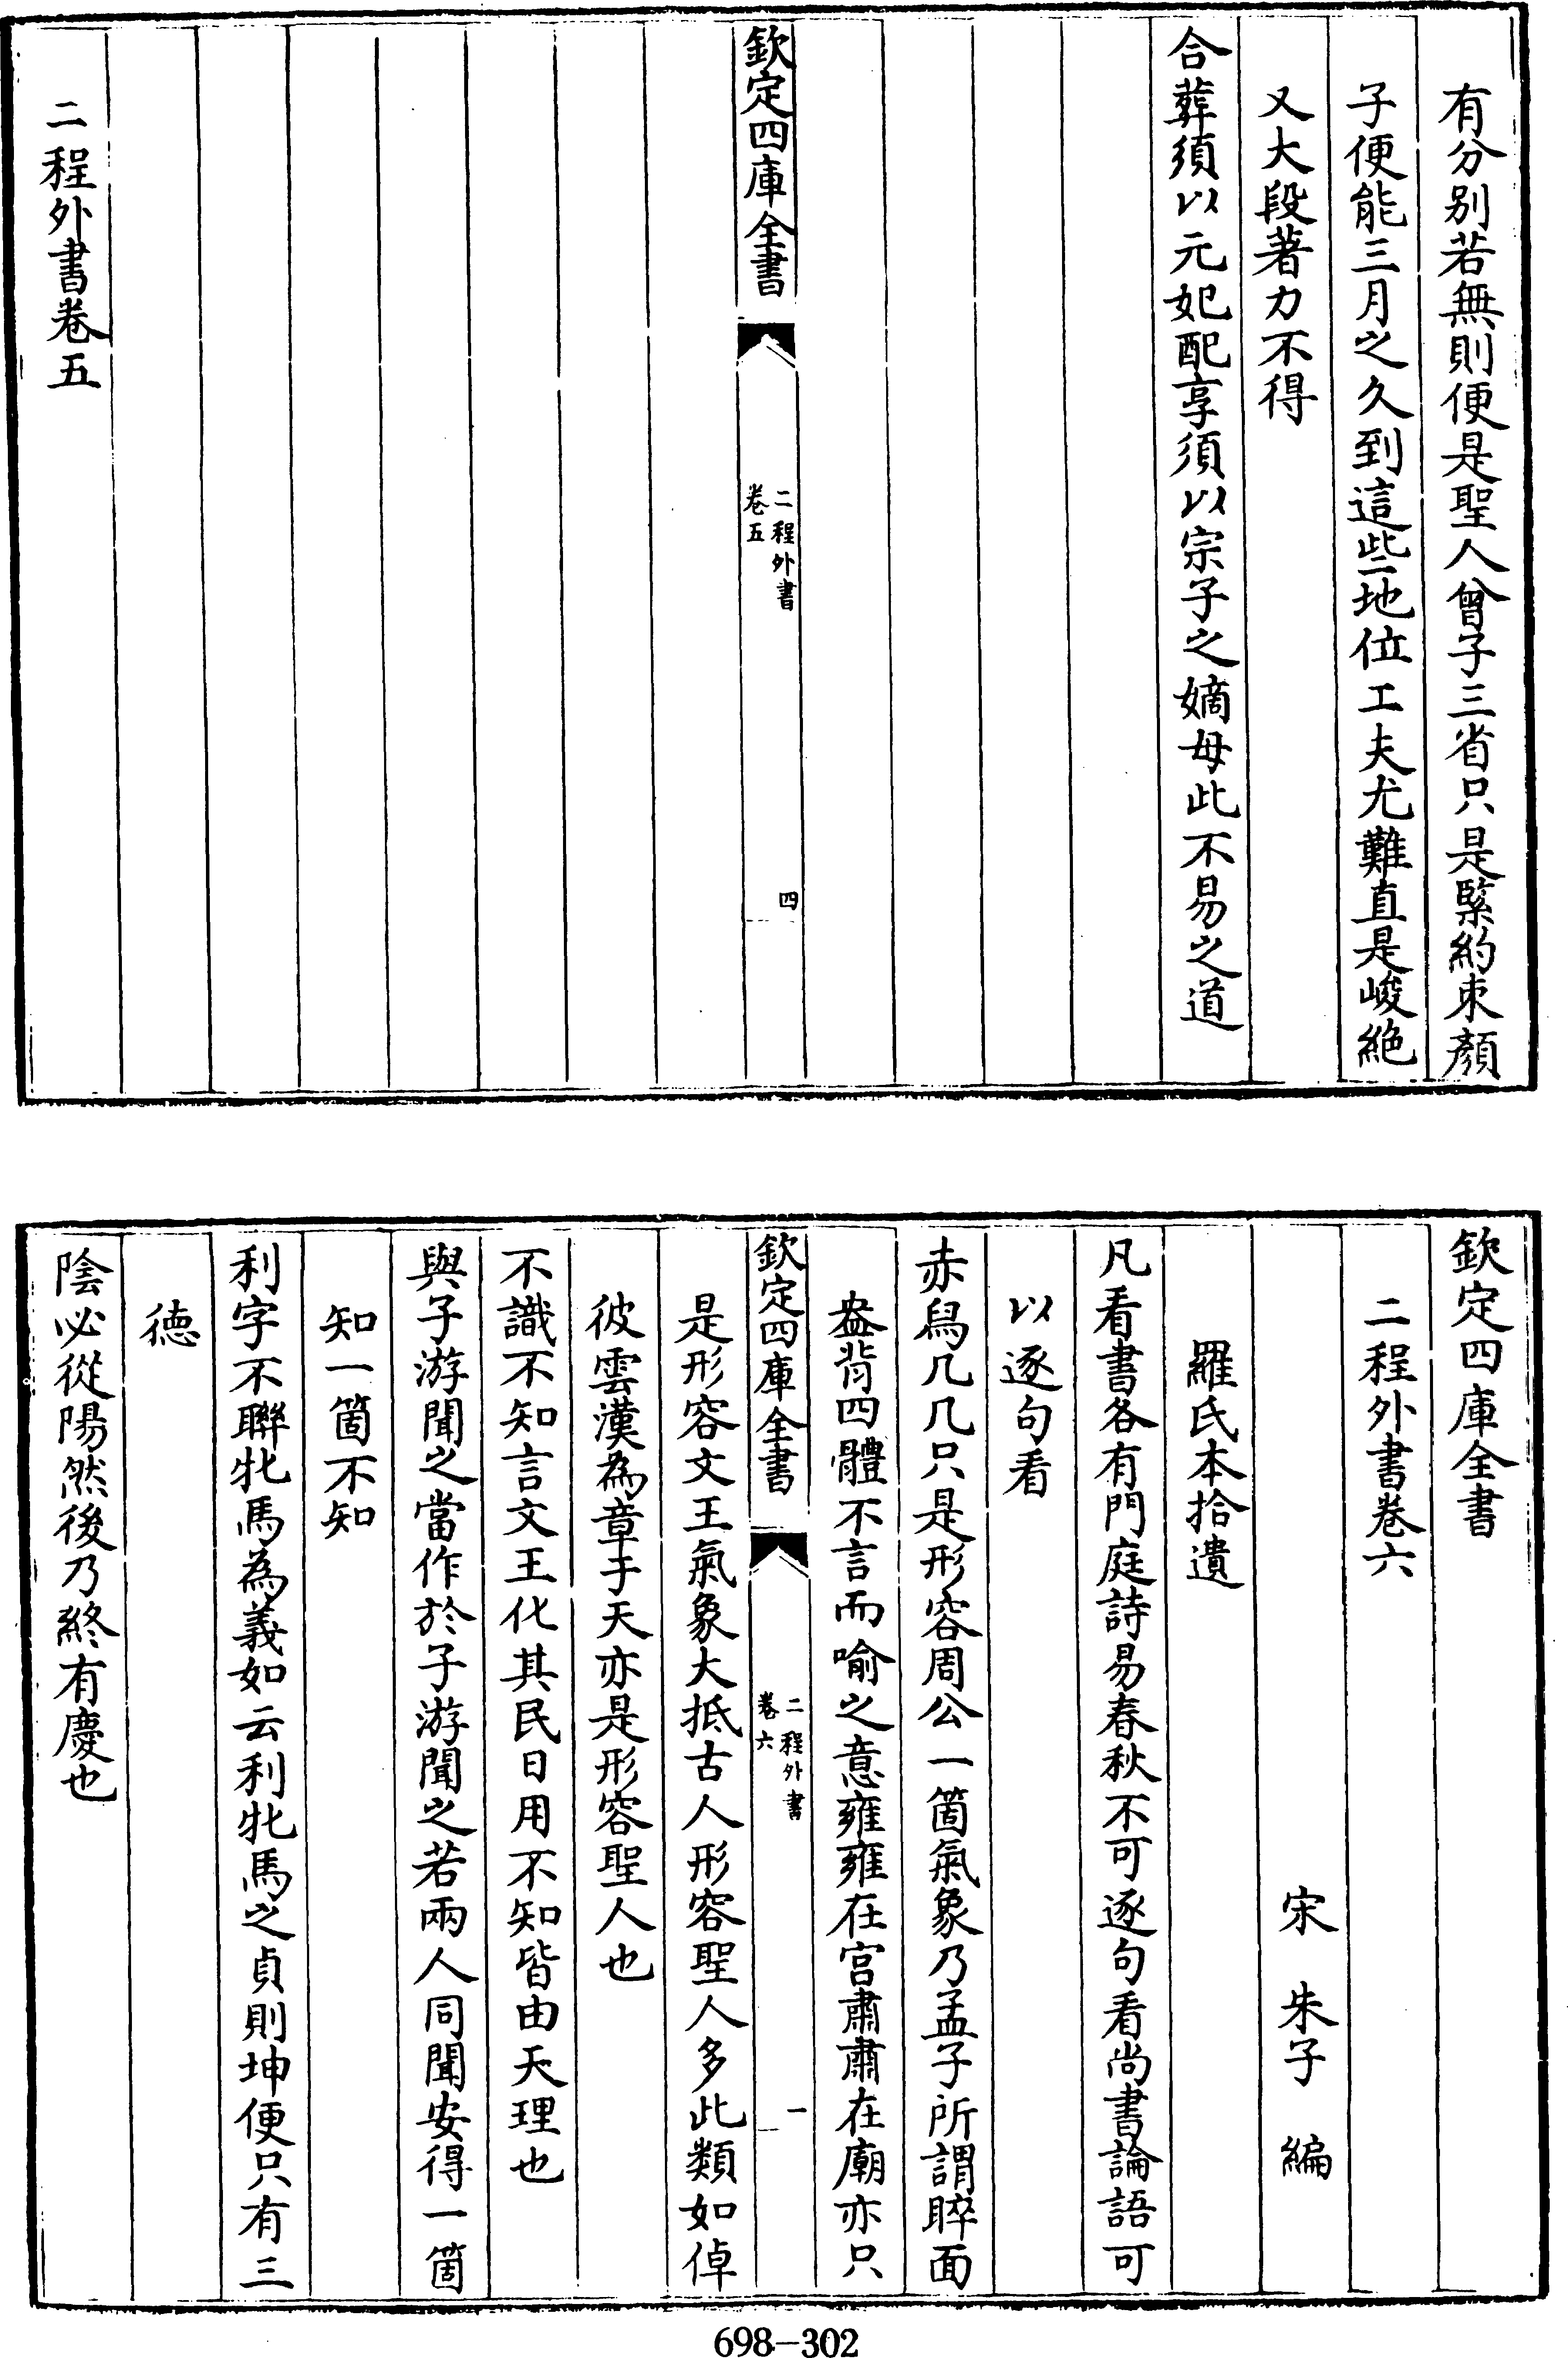 有分别若無則便是聖人曾子三省只是緊約束顏
子便能三月之久到這些地位工夫尤難直是峻絶
又大段著力不得
合葬須以元妃配享須以宗子之嫡母此不易之道
欽定四庫全書
二程外書
卷五
四
二程外書卷五
欽定四庫全書
二程外書卷六
宋 朱子 編
羅氏本拾遺
凡看書各有門庭詩易春秋不可逐句看尚書論語可
以逐句看
赤舄几几只是形容周公一箇氣象乃孟子所謂睟面
盎背四體不言而喻之意雍雍在宫肅肅在廟亦只
欽定四庫全書
二程外書
卷六
一
是形容文王氣象大抵古人形容聖人多此類如倬
彼雲漢為章于天亦是形容聖人也
不識不知言文王化其民日用不知皆由天理也
與子游聞之當作於子游聞之若兩人同聞安得一箇
知一箇不知
利字不聯牝馬為義如云利牝馬之貞則坤便只有三
徳
陰必從陽然後乃終有慶也
698-302